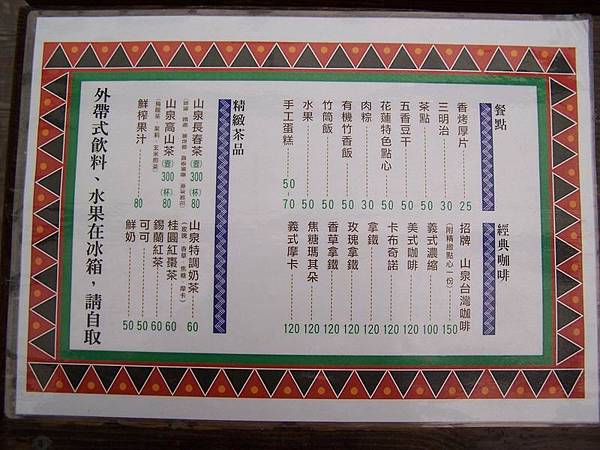 餐點
香烤厚片 25
三明治 30
茶點 50
五香豆干 50
花蓮特色點心 50
肉粽 30
有機竹香飯 50
竹筒飯 50
水果 50
手工蛋糕 50-70
經典咖啡
招牌 山泉台灣咖啡 150
(附精緻點心一份)
義式濃縮 100
美式咖啡 120
卡布奇諾 120
拿鐵 120
玫瑰拿鐵 120
香草拿鐵 120
焦糖瑪其朵 120
義式摩卡 120
精緻茶品
山泉長春茶 (壺) 300 (杯) 80
山泉高山茶 (壺) 300 (杯) 80
(烏龍茶、茉莉、玄米煎茶)
鮮榨果汁 80
山泉特調奶茶 60
桂圓紅棗茶 60
錫蘭紅茶 60
可可 50
鮮奶 50
外帶式飲料、水果在冰箱，請自取